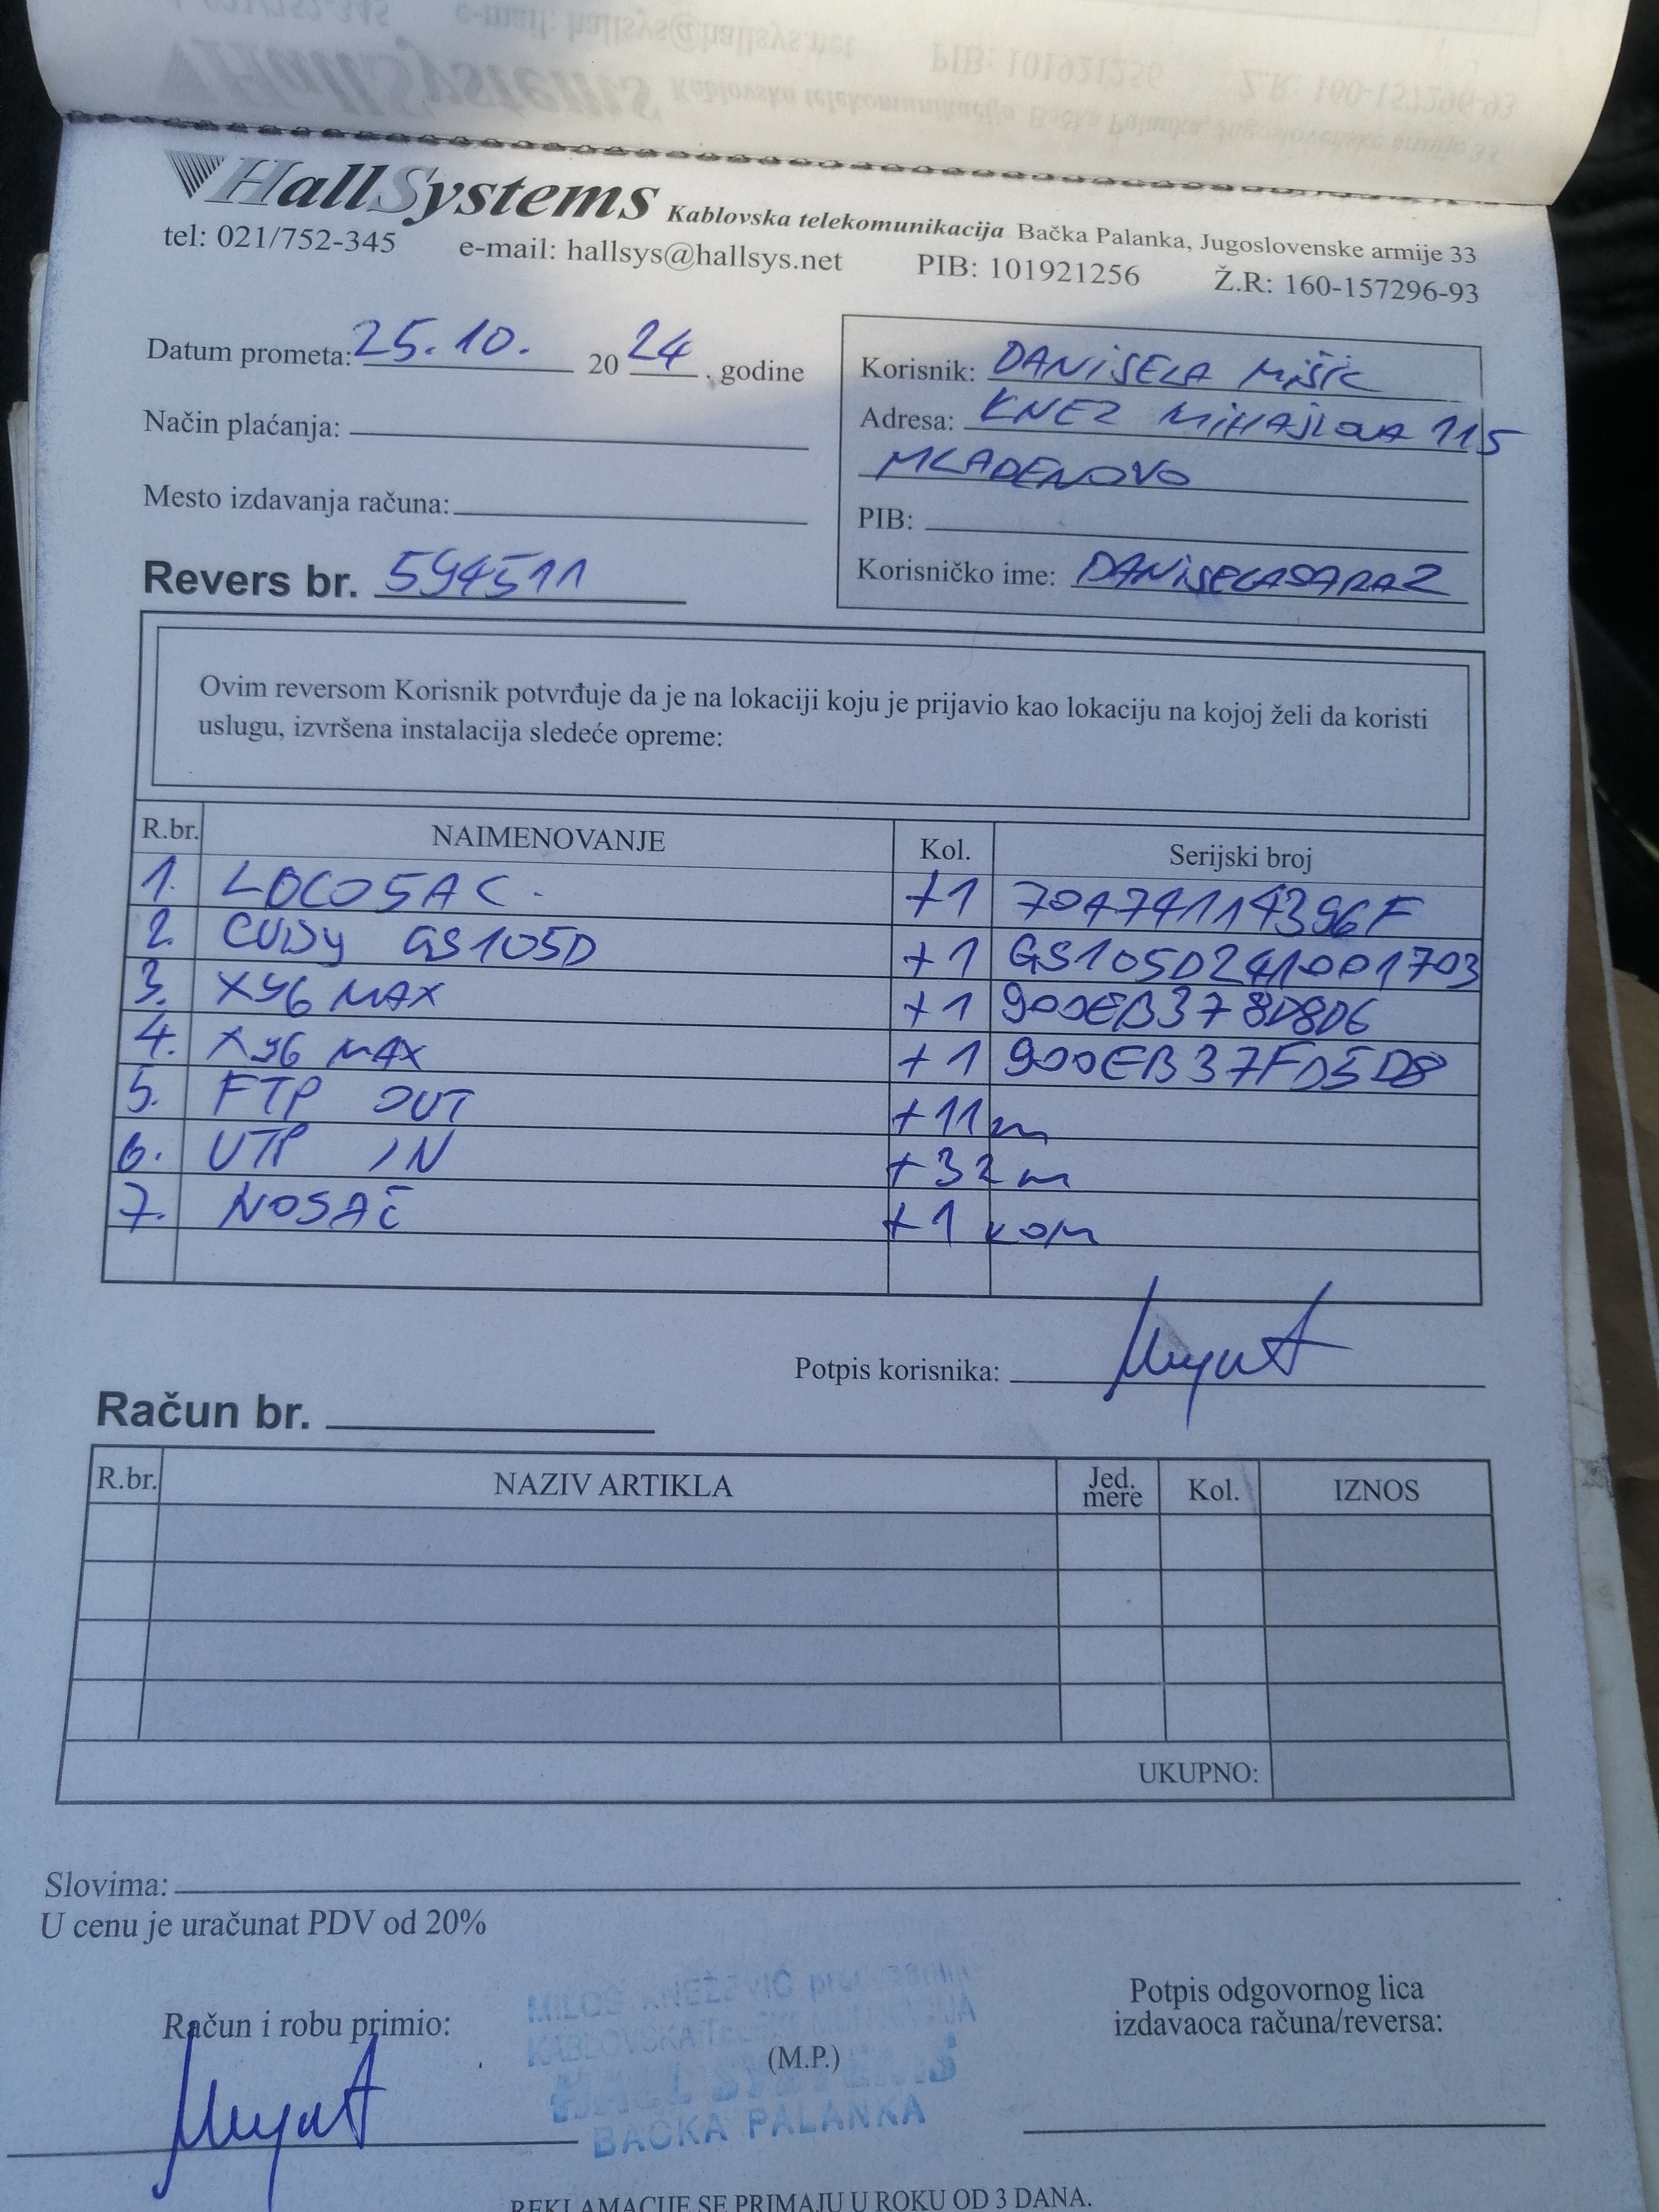 HallSystems Kablovska telekomunikacija Bačka Palanka, Jugoslovenske armije 33
tel: 021/752-345 e-mail: hallsys@hallsys.net PIB: 101921256 Ž.R: 160-157296-93
Datum prometa: 25.10. 2024. godine
Način plaćanja:
Mesto izdavanja računa:
Revers br. 594511
Korisnik: DANIJELA MIŠIĆ
Adresa: KNEZ MIHAJLOVA 115
MLADENOVO
PIB:
Korisničko ime: DANIJELASARAZ
Ovim reversom Korisnik potvrđuje da je na lokaciji koju je prijavio kao lokaciju na kojoj želi da koristi
uslugu, izvršena instalacija sledeće opreme:
R.br. NAIMENOVANJE Kol. Serijski broj
1. LOCO5AC +1 70A74114396F
2. CUDY GS105D +1 GS105D241001703
3. XY6 MAX +1 900EB378D8D6
4. XY6 MAX +1 900EB37FD5D8
5. FTP OUT +11m
6. UTP IN +32m
7. NOSAČ +1 kom
Potpis korisnika:
Račun br.
R.br. NAZIV ARTIKLA Jed. mere Kol. IZNOS
UKUPNO:
Slovima:
U cenu je uračunat PDV od 20%
Račun i robu primio:
MILOŠ KNEŽEVIĆ
KABLOVSKA TELEKOMUNIKACIJA
HALL SYSTEMS
BAČKA PALANKA
(M.P.)
Potpis odgovornog lica
izdavaoca računa/reversa:
REKLAMACIJE SE PRIMAJU U ROKU OD 3 DANA.